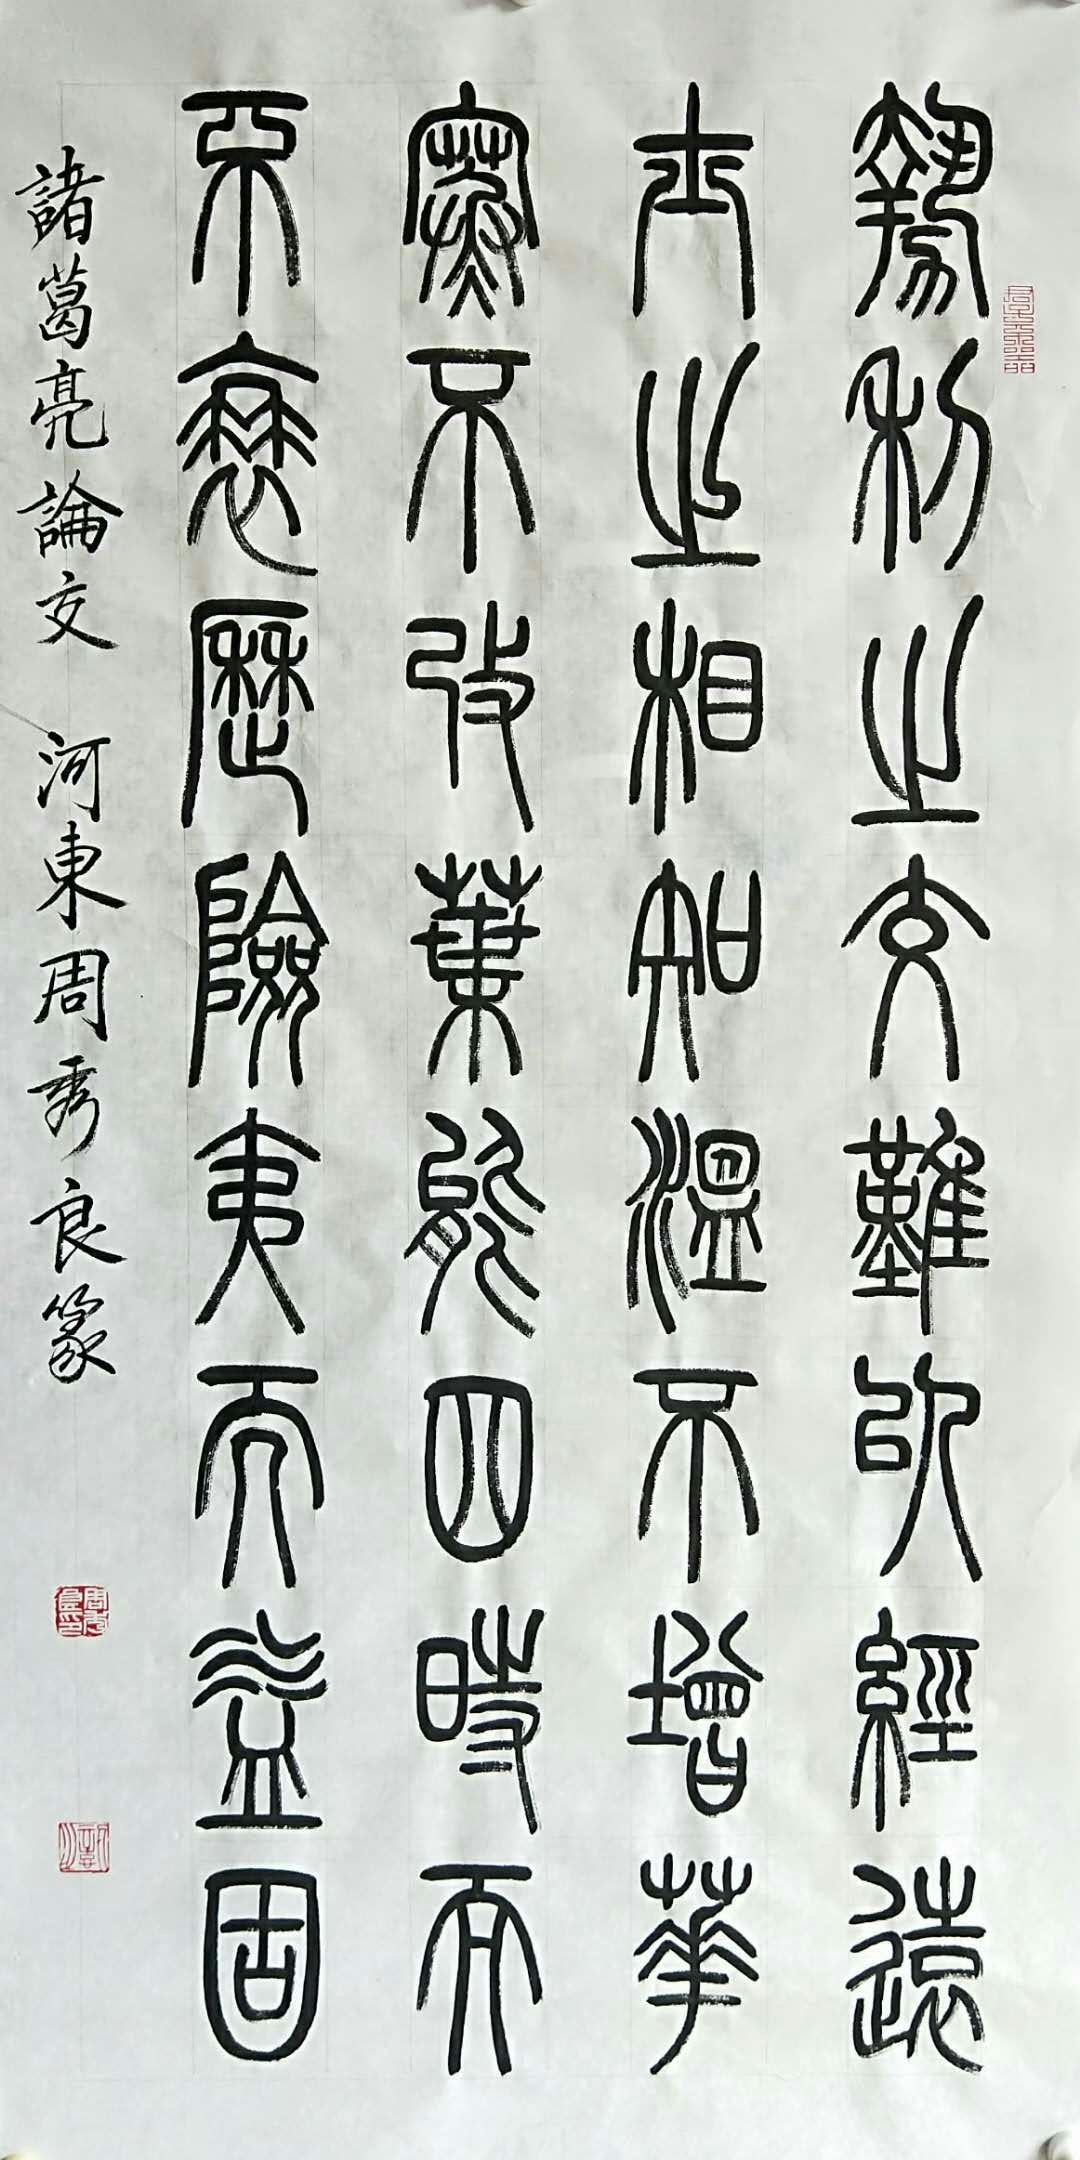 勢利之交難以經遠
士之相知溫不增華
寒不改葉能四時而
不衰歷險夷而益固
諸葛亮論交 河東周秀良篆